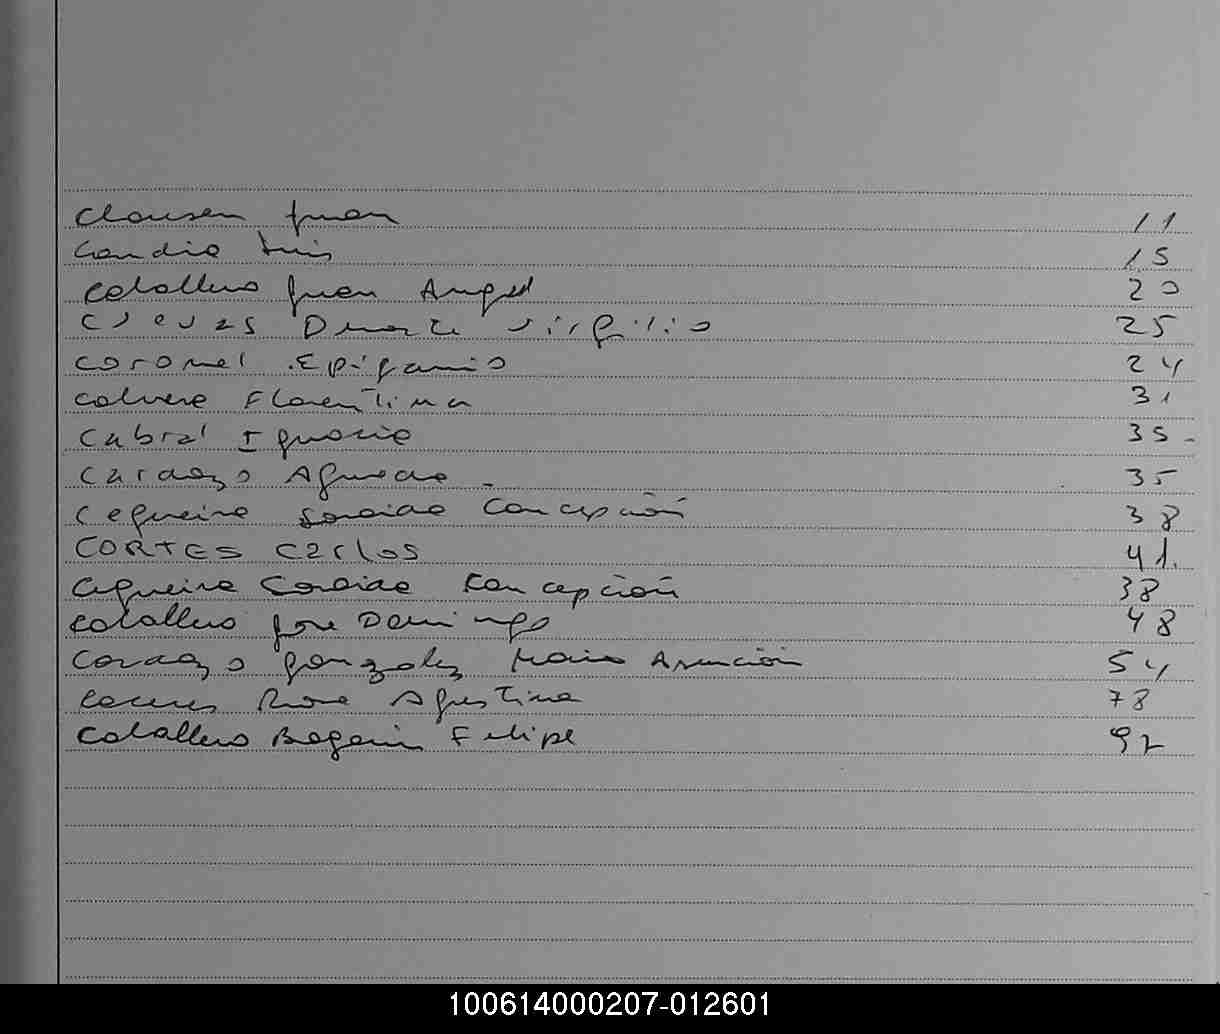 Clausen Juan 11
Candia Luis 15
Caballero Juan Angel 20
Cuevas Duarte Virgilio 25
Coronel Epifanio 24
Florentina 31
Cabral Ignacio 35
Cardozo Agueda 35
Cequeira Concepción 38
CORTES Carlos 41
Cequeira Concepción 38
Caballero Jose Domingo 48
Cardozo Gonzalez Maria Asunción 54
Caceres Rosa Agustina 78
Caballero Bogarin Felipe 92
100614000207-012601